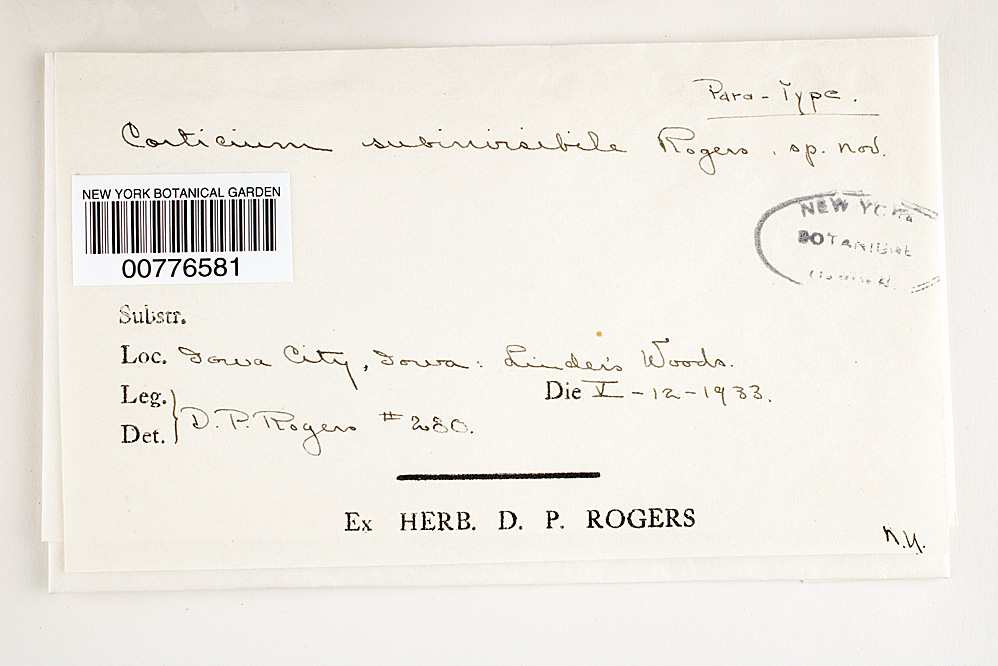 Para-Type.
Corticium subinvisibile Rogers, sp. nov.
NEW YORK BOTANICAL GARDEN
00776581
NEW YORK
BOTANICAL
Substr.
Loc. Iowa City, Iowa: Linder's Woods.
Leg. Die V-12-1933.
Det. D. P. Rogers #280.
Ex HERB. D. P. ROGERS
N.Y.